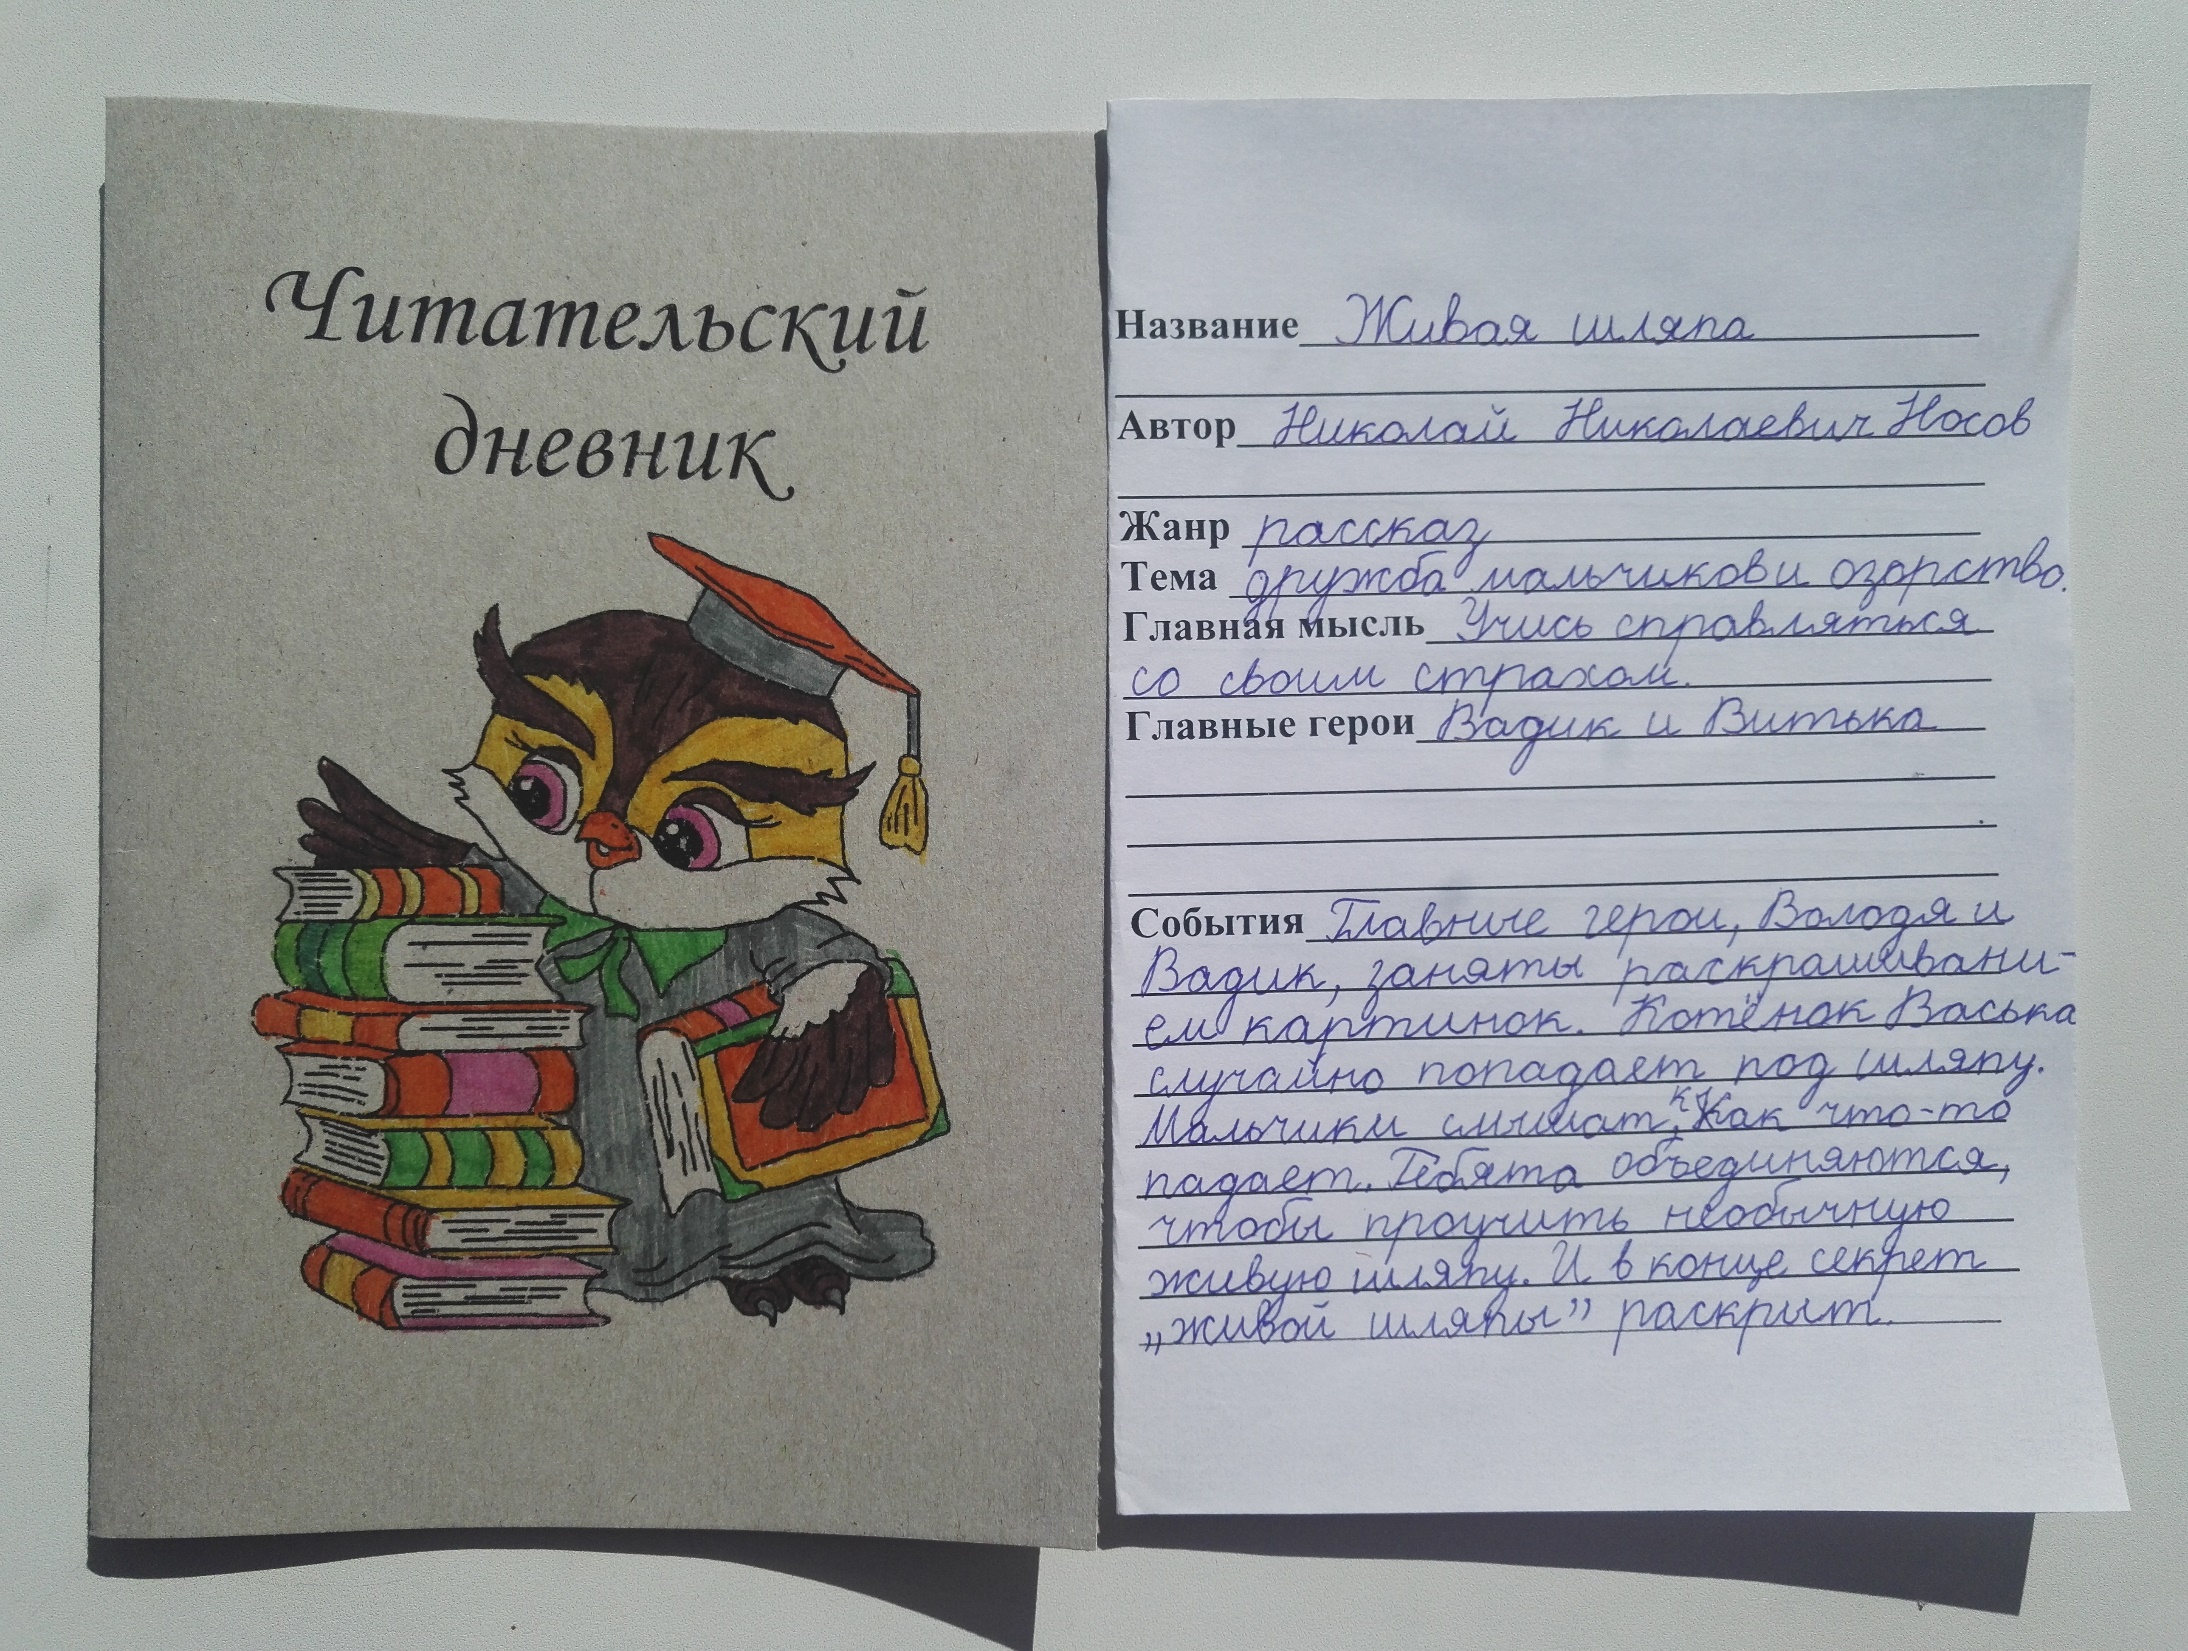 Читательский
дневник
Название Живая шляпа
Автор Николай Николаевич Носов
Жанр рассказ
Тема дружба мальчиков и озорство.
Главная мысль Учись справляться
со своим страхом.
Главные герои Вадик и Витька
События Главные герои, Володя и
Вадик, заняты раскрашивани-
ем картинок. Котёнок Васька
случайно попадает под шляпу.
Мальчики слышат, как что-то
падает. Ребята объединяются,
чтобы проучить необычную
живую шляпу. И в конце секрет
„живой шляпы” раскрыт.